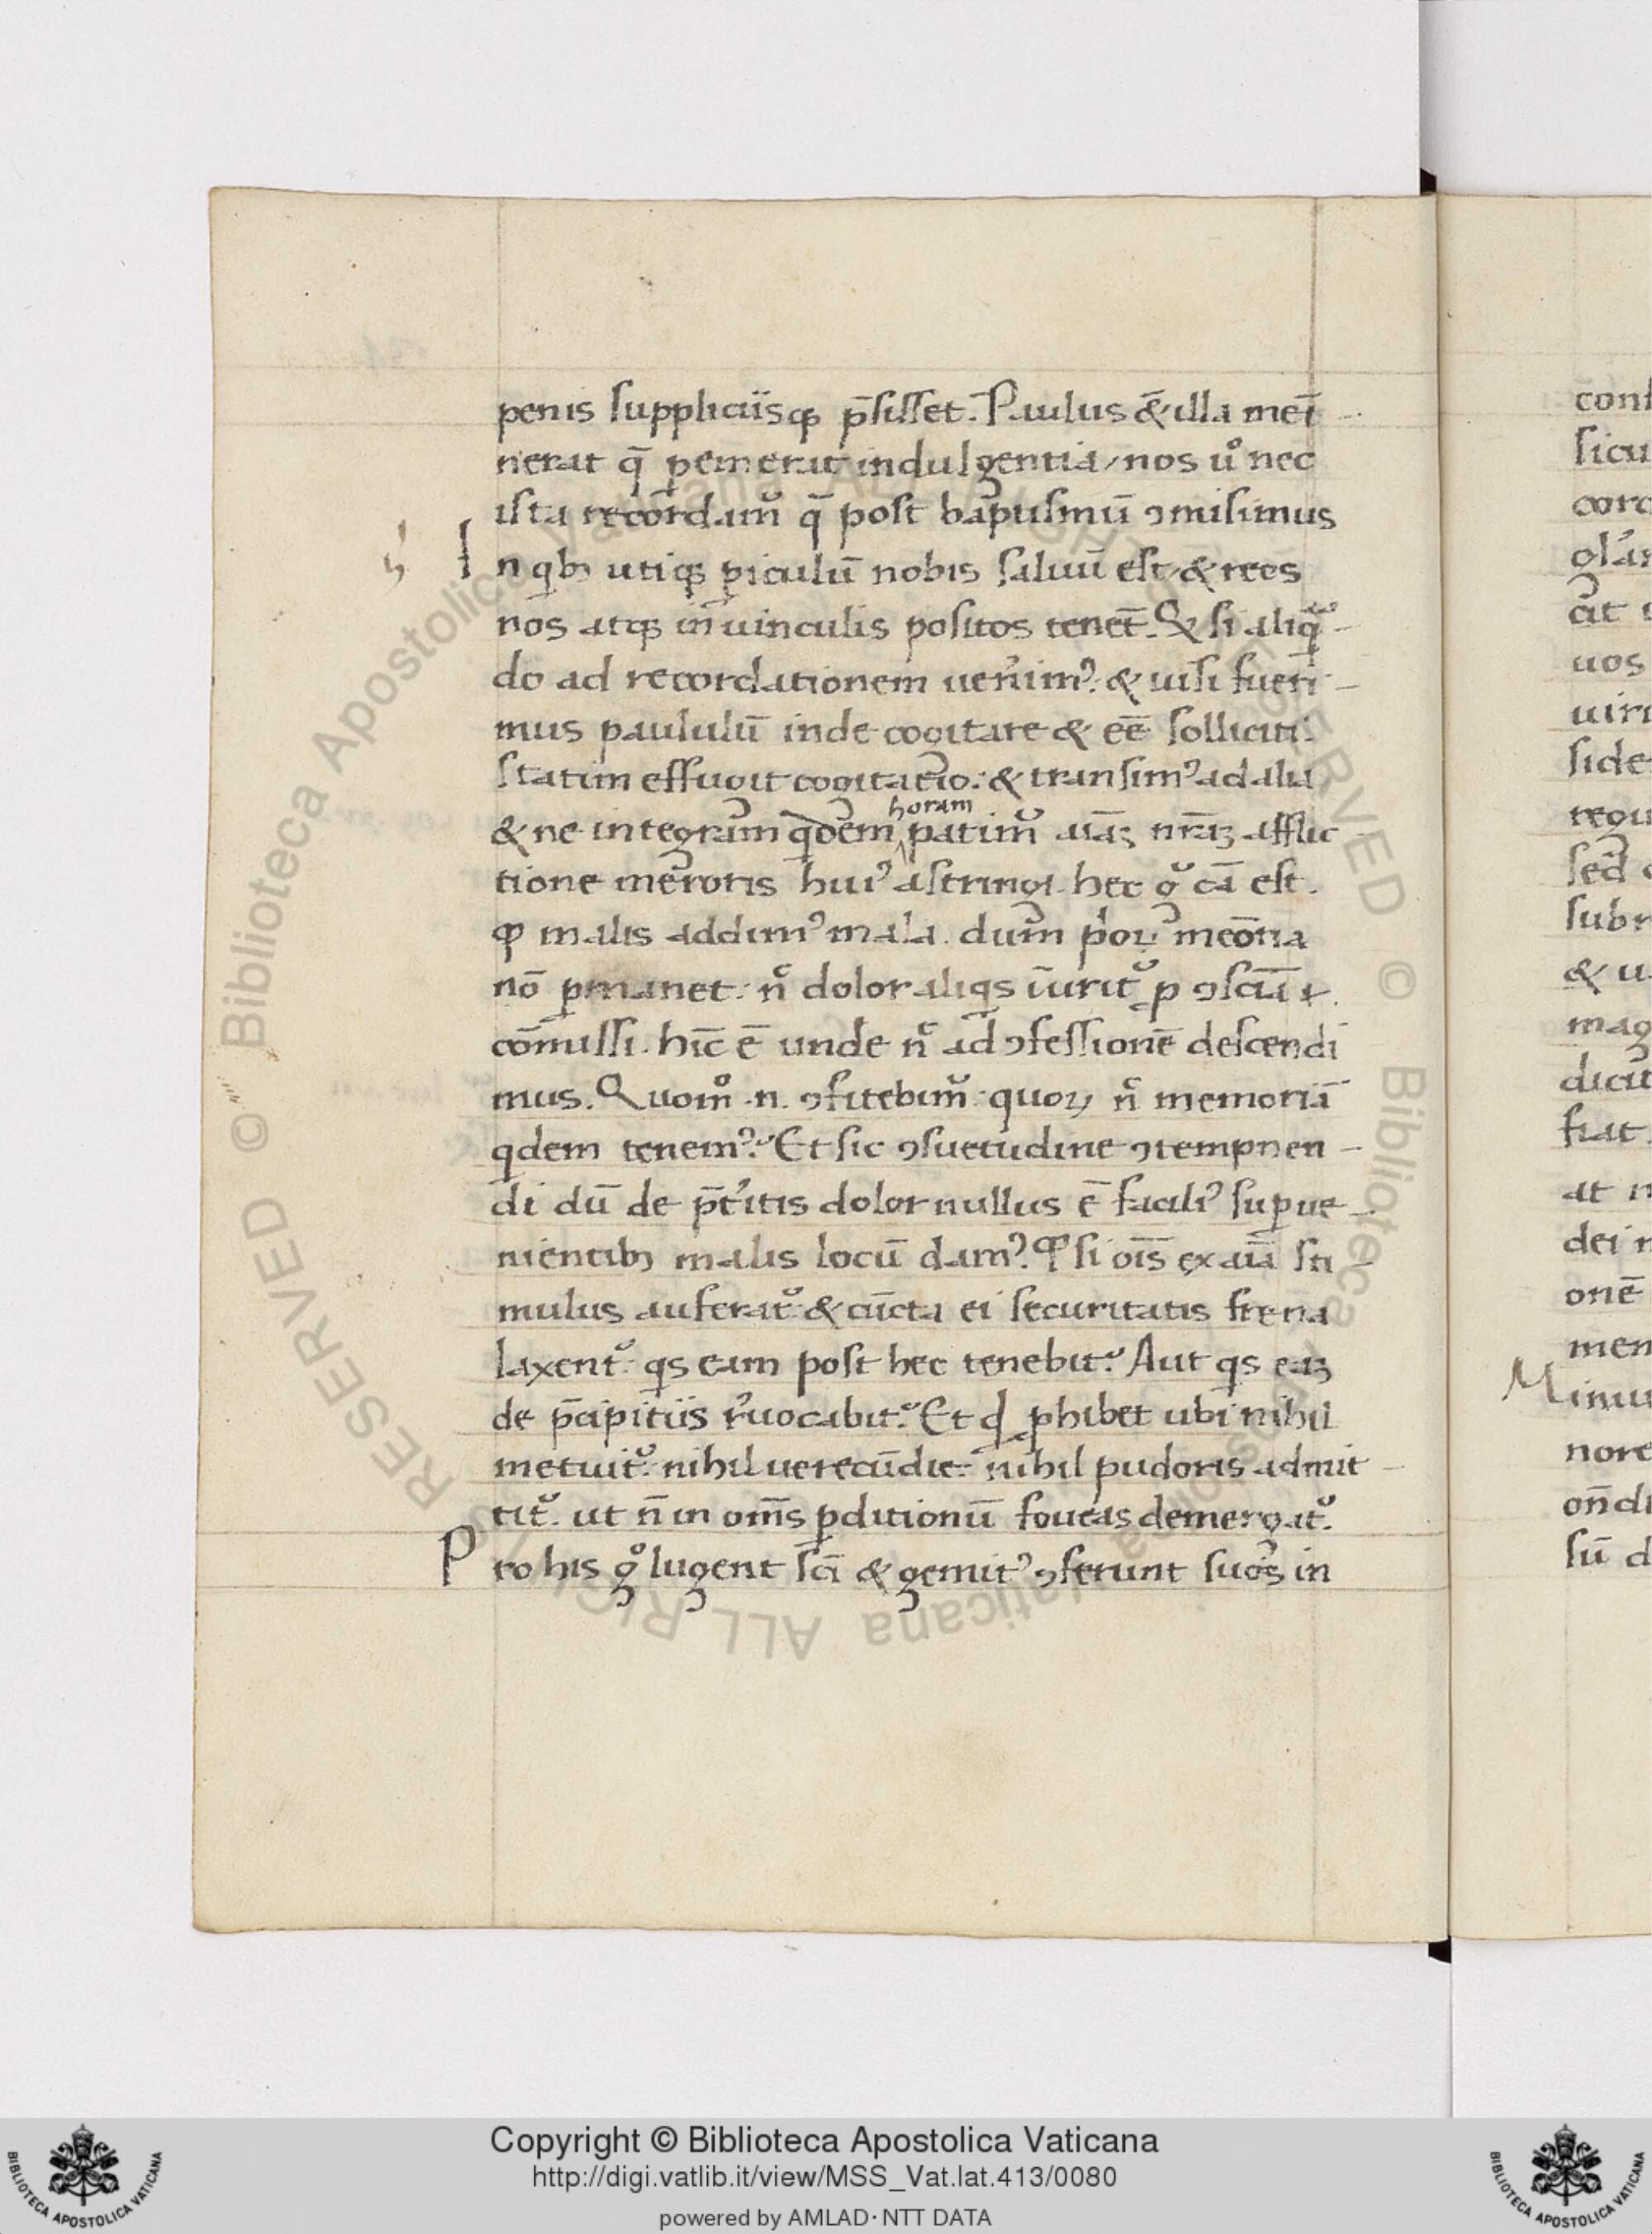 penis suppliciisqꝫ p̄sisset. Paulus &̄ illa mei̅ -
nerat q̄ pemerat indulgentia, nos u° nec
ista recordam᷑ q̄ post baptismū ꝯmisimus
In qbꝫ utiqꝫ ꝑiculū nobis saluū est, & reos
nos atqꝫ in uinculis positos tenet̄. Q& si aliqū -
do ad recordationem uen̓imꝰ: & uisi fueri -
mus paululū inde cogitare & ee̅ solliciti:
statim effugit cogitatio: & transimꝰ ad alia
& ne integram qdem horam patim᷑ aīaꝫ nr̄aꝫ afflic -
tione meroris huiꝰ astringi. hec g° cā est.
ꝙ malis addimꝰ mala. dum p̓oꝝ meo̅ria
no̅ ꝑmanet: n̄ dolor aliqs i̅urit᷑ ꝓ ꝯscīa &
co̅missi. hīc ē unde n̄ ad ꝯfessionē descendi
mus. Quom° .n. ꝯfitebim᷑: quoꝝ n̄ memoriā
qdem tenemꝰ? Et sic ꝯsuetudine ꝯtempnen -
di dū de p̄t̓itis dolor nullus ē faciliꝰ suꝑue -
nientibꝫ malis locū damꝰ? ꝙ si oi̅s ex aīa sti -
mulus auferat᷑: & cūcta ei securitatis frena
laxent᷑: qs eam post hec tenebit? Aut qs eaꝫ
de p̄cipitiis r̓uocabit? Et qd ꝓhibet ubi nihil
metuit᷑: nihil uerecūdie: nihil pudoris admit -
tit᷑. ut n̄ in om̄s ꝑditionū foueas demergat᷑.
Pro his g° lugent sc̄i & gemitꝰ ꝯferunt suos in
conf
sicu
cord
gl̓ar
at u
uos
uiri
side
regu
sed
subr
& u
mag
dicit
fiat
at n
dei n
onē
men
Minu
nore
on̄di
sū d
Copyright © Biblioteca Apostolica Vaticana
http://digi.vatlib.it/view/MSS_Vat.lat.413/0080
powered by AMLAD·NTT DATA